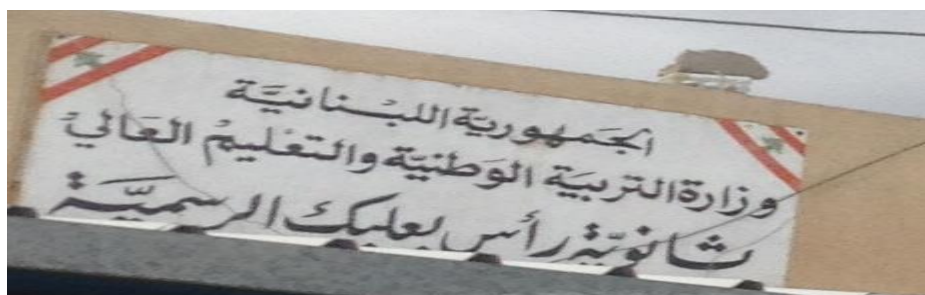 الجَمهوريَّة اللبْنانيَّة
وزارة التربيَة الوَطنيَّة والتعْليمْ العَاليْ
ثانويّة رأس بعلبك الرسميَّة